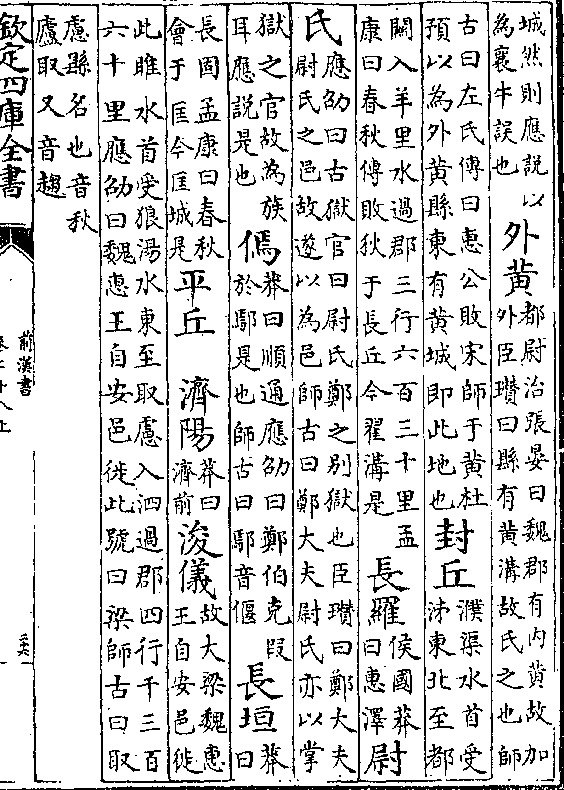 城然則應說以
為襄牛誤也
外黄
都尉治張晏曰魏郡有内黄故加
外臣瓚曰縣有黄溝故氏之也師
古曰左氏傳曰惠公敗宋師于黄杜
預以為外黄縣東有黄城即此地也
封丘
濮渠水首受
泲東北至都
關入羊里水過郡三行六百三十里孟
康曰春秋傳敗狄于長丘今翟溝是
長羅
侯國莽
曰惠澤
尉
氏
應劭曰古獄官曰尉氏鄭之别獄也臣瓚曰鄭大夫
尉氏之邑故遂以為邑師古曰鄭大夫尉氏亦以掌
獄之官故為族
耳應說是也
傿
莽曰順通應劭曰鄭伯克段
於鄢是也師古曰鄢音偃
長垣
莽
曰
長固孟康曰春秋
會于匡今匡城是
平丘 濟陽
莽曰
濟前
浚儀
故大梁魏惠
王自安邑徙
此睢水首受狼湯水東至取慮入泗過郡四行千三百
六十里應劭曰魏惠王自安邑徙此號曰梁師古曰取
慮縣名也音秋
廬取又音趨
欽定四庫全書
前漢書